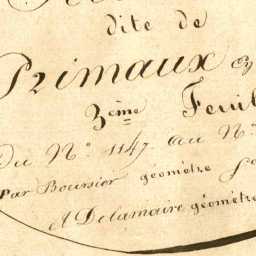 dite de
Primaux
3ème Feuil
Du N° 1147 au N°
Par Boursier géomètre
A Delamaire géomètre